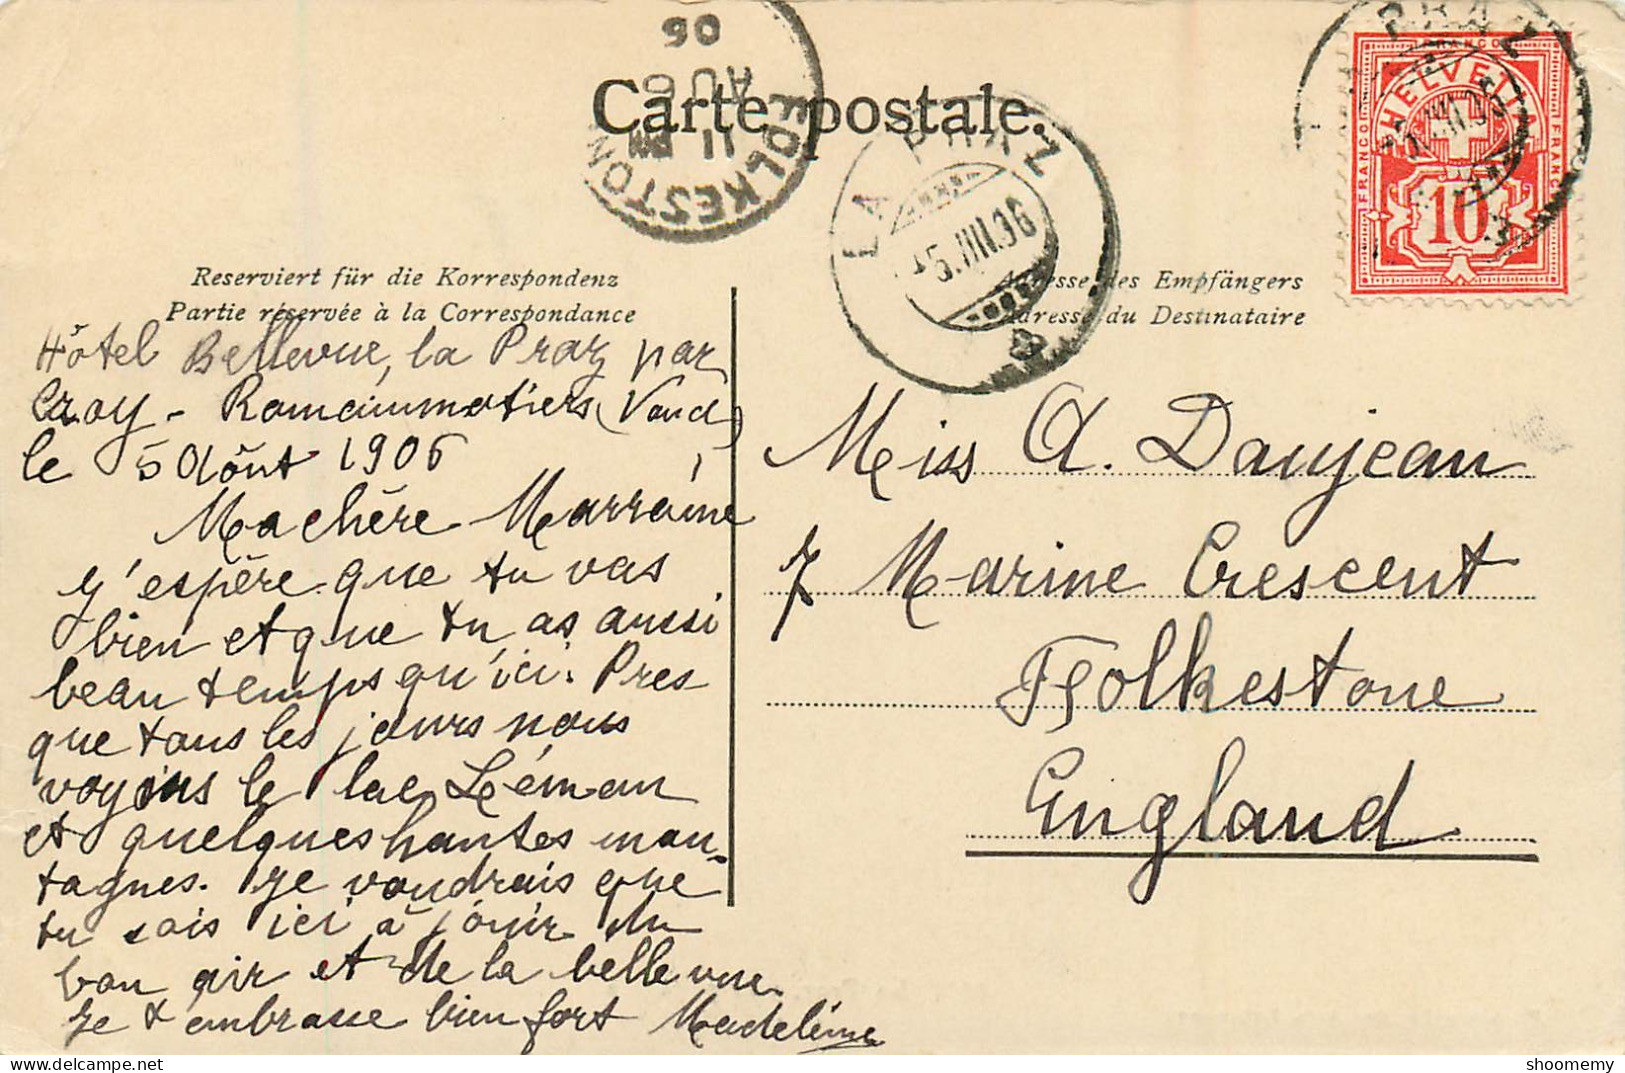 Carte postale.
FOLKESTONE
11 PM
AU
06
LA PRAZ
5.VIII.06
PRAZ
FRANCO
HELVETIA
FRANCO
FRANCO
10
Reserviert für die Korrespondenz
Partie réservée à la Correspondance
des Empfängers
Adresse du Destinataire
Hôtel Bellevue, la Praz par
Croy - Romainmotiers (Vaud)
le 5 Aôut 1906
Ma chère Marraine
J'espère que tu vas
bien et que tu as aussi
beau temps qu'ici. Pres
que tous les jours nous
voyons le lac Léman
et quelques hautes mon-
tagnes. Je voudrais que
tu sois ici à jouir du
bon air et de la belle vue.
Je t'embrasse bien fort Madeleine
Miss A. Daujean
7 Marine Crescent
Folkestone
England
shoomemy